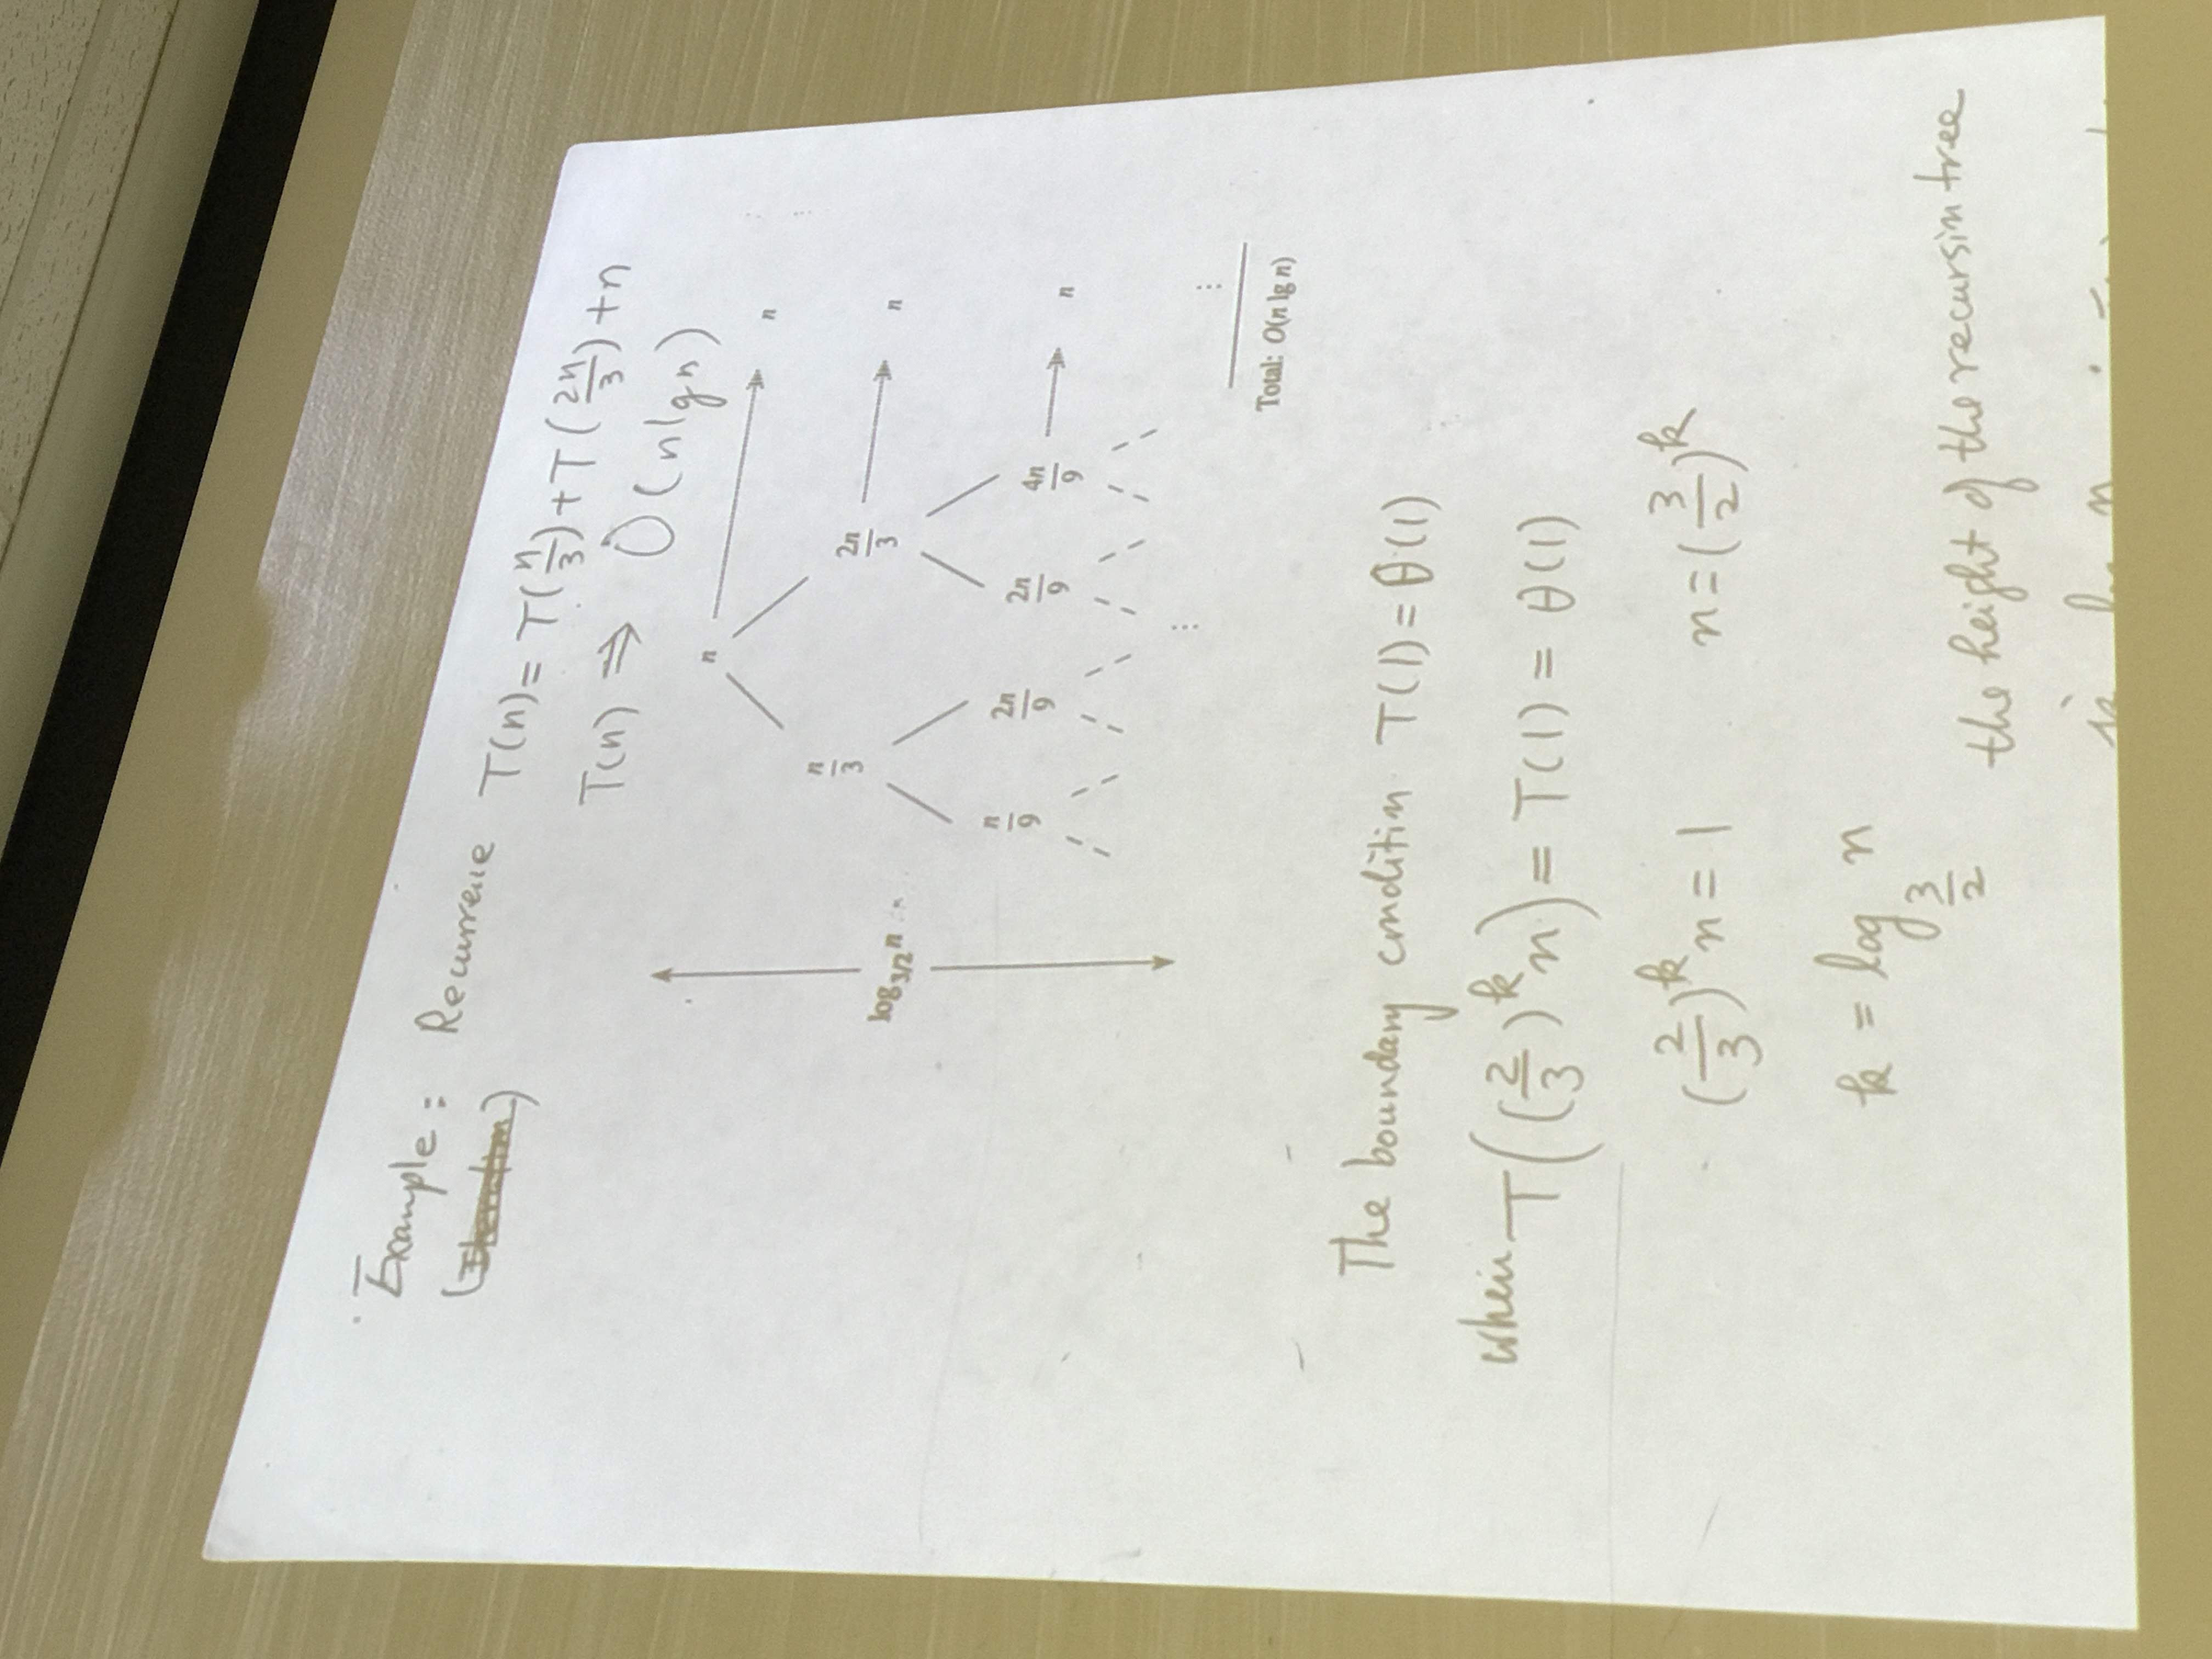 Example: Recurrence T(n) = T(n/3) + T(2n/3) + n
(Iteration)
T(n) ⇒ O(n lg n)
n → n
n/3 2n/3 → n
log_{3/2} n
n/9 2n/9 2n/9 4n/9 → n
⋮ ⋮
Total: O(n lg n)
The boundary condition T(1) = θ(1)
when T((2/3)^k n) = T(1) = θ(1)
(2/3)^k n = 1 n = (3/2)^k
k = log_{3/2} n
the height of the recursion tree
is